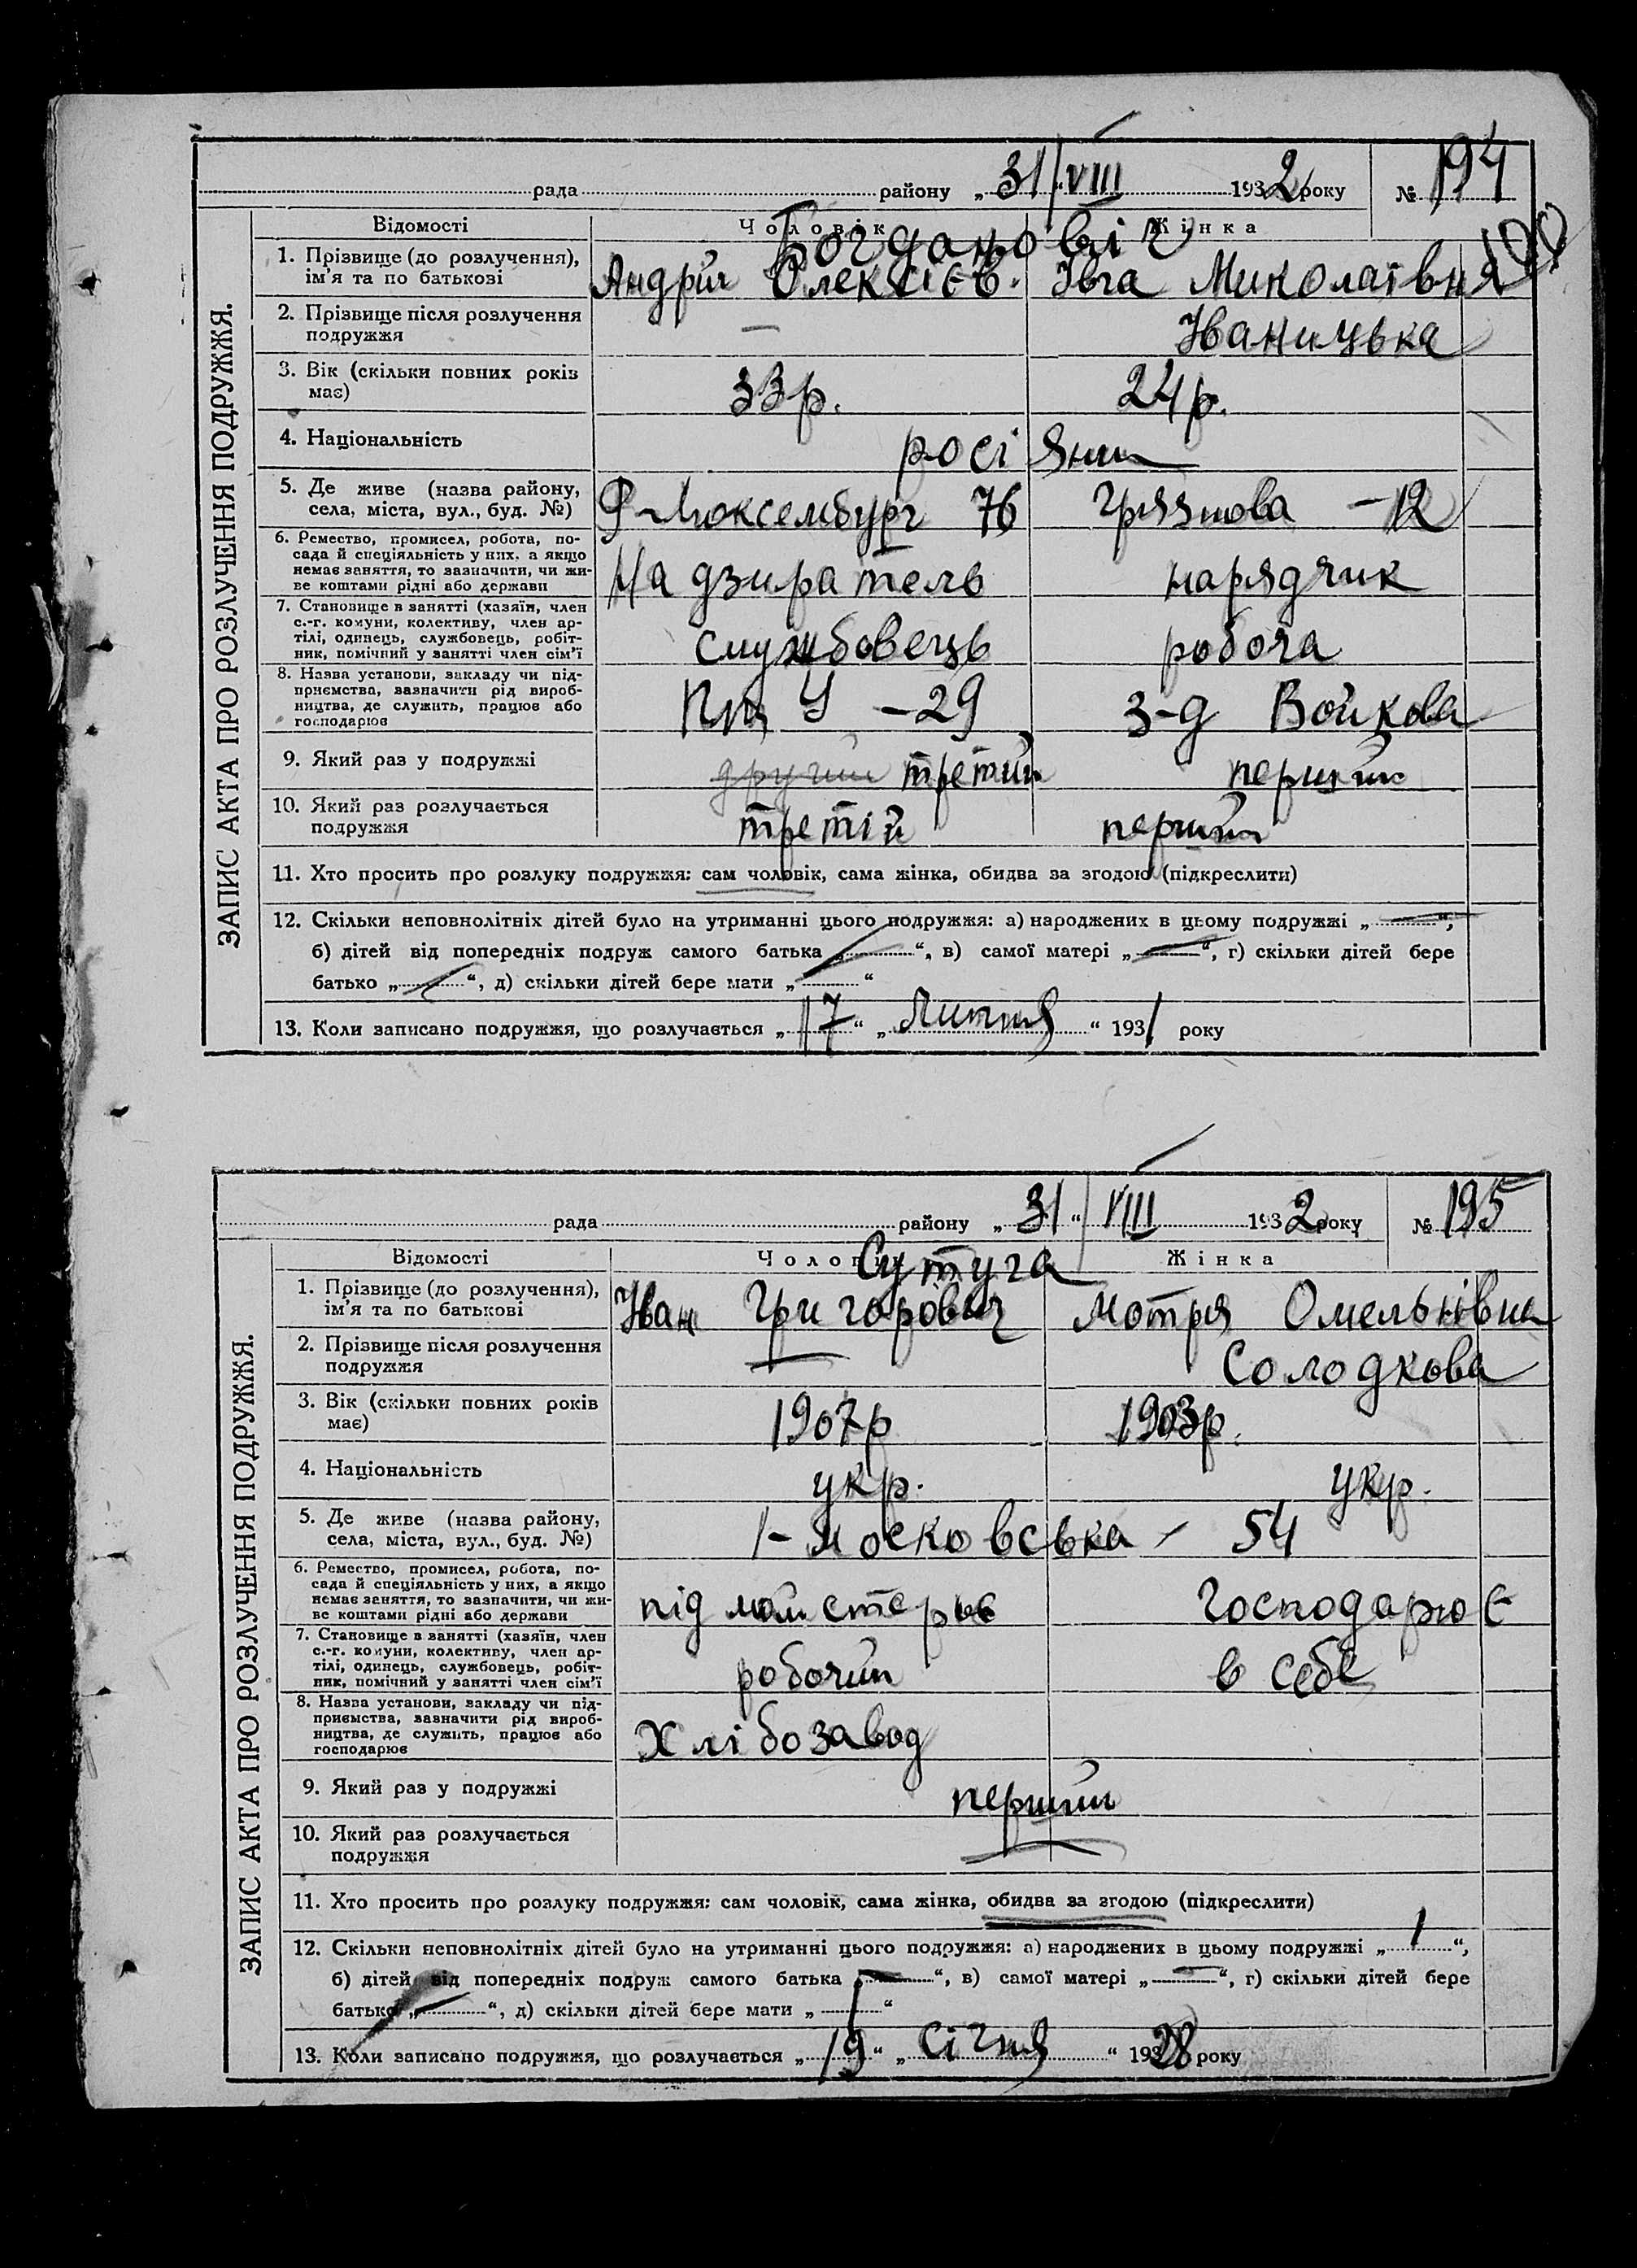 рада району „31“ VIII 1932 року № 194
Відомості Чоловік Жінка
Богданович
100
1. Прізвище (до розлучення), ім'я та по батькові Андрій Олексієв. Івга Миколаївна
2. Прізвище після розлучення подружжя — Іваницька
3. Вік (скільки повних років має) 33 р. 24 р.
4. Національність росіяни
5. Де живе (назва району, села, міста, вул., буд. №) Р-Люксембург 76 Грязнова - 12
6. Ремество, промисел, робота, по-
сада й спеціяльність у них, а якщо
немає заняття, то зазначити, чи жи-
ве коштами рідні або держави Надзиратель нарядчик
7. Становище в занятті (хазяїн, член
с.-г. комуни, колективу, член ар-
тілі, одинець, службовець, робіт-
ник, помічний у занятті член сім'ї службовець робоча
8. Назва установи, закладу чи під-
приємства, зазначити рід вироб-
ництва, де служить, працює або
господарює - 29 з-д Войкова
9. Який раз у подружжі другий третий перший
10. Який раз розлучається подружжя третій перший
11. Хто просить про розлуку подружжя: сам чоловік, сама жінка, обидва за згодою (підкреслити)
12. Скільки неповнолітніх дітей було на утриманні цього подружжя: а) народжених в цьому подружжі „—“,
б) дітей від попередніх подруж самого батька „—“, в) самої матері „—“, г) скільки дітей бере
батько „—“, д) скільки дітей бере мати „ “
13. Коли записано подружжя, що розлучається „17“ „Липня“ 1931 року
ЗАПИС АКТА ПРО РОЗЛУЧЕННЯ ПОДРУЖЖЯ.
рада району „31“ VIII 1932 року № 195
Відомості Чоловік Жінка
Сутуга
1. Прізвище (до розлучення), ім'я та по батькові Іван Григорович Мотря Омельнівна
2. Прізвище після розлучення подружжя — Солодкова
3. Вік (скільки повних років має) 1907 р 1903 р.
4. Національність укр. укр.
5. Де живе (назва району, села, міста, вул., буд. №) 1-Московська - 54
6. Ремество, промисел, робота, по-
сада й спеціяльність у них, а якщо
немає заняття, то зазначити, чи жи-
ве коштами рідні або держави Господарює
7. Становище в занятті (хазяїн, член
с.-г. комуни, колективу, член ар-
тілі, одинець, службовець, робіт-
ник, помічний у занятті член сім'ї робочий в себе
8. Назва установи, закладу чи під-
приємства, зазначити рід вироб-
ництва, де служить, працює або
господарює Хлібозавод
9. Який раз у подружжі перший
10. Який раз розлучається подружжя —
11. Хто просить про розлуку подружжя: сам чоловік, сама жінка, обидва за згодою (підкреслити)
12. Скільки неповнолітніх дітей було на утриманні цього подружжя: а) народжених в цьому подружжі „1“,
б) дітей від попередніх подруж самого батька „—“, в) самої матері „—“, г) скільки дітей бере
батько „—“, д) скільки дітей бере мати „1“
13. Коли записано подружжя, що розлучається „19“ „Січня“ 1928 року
ЗАПИС АКТА ПРО РОЗЛУЧЕННЯ ПОДРУЖЖЯ.